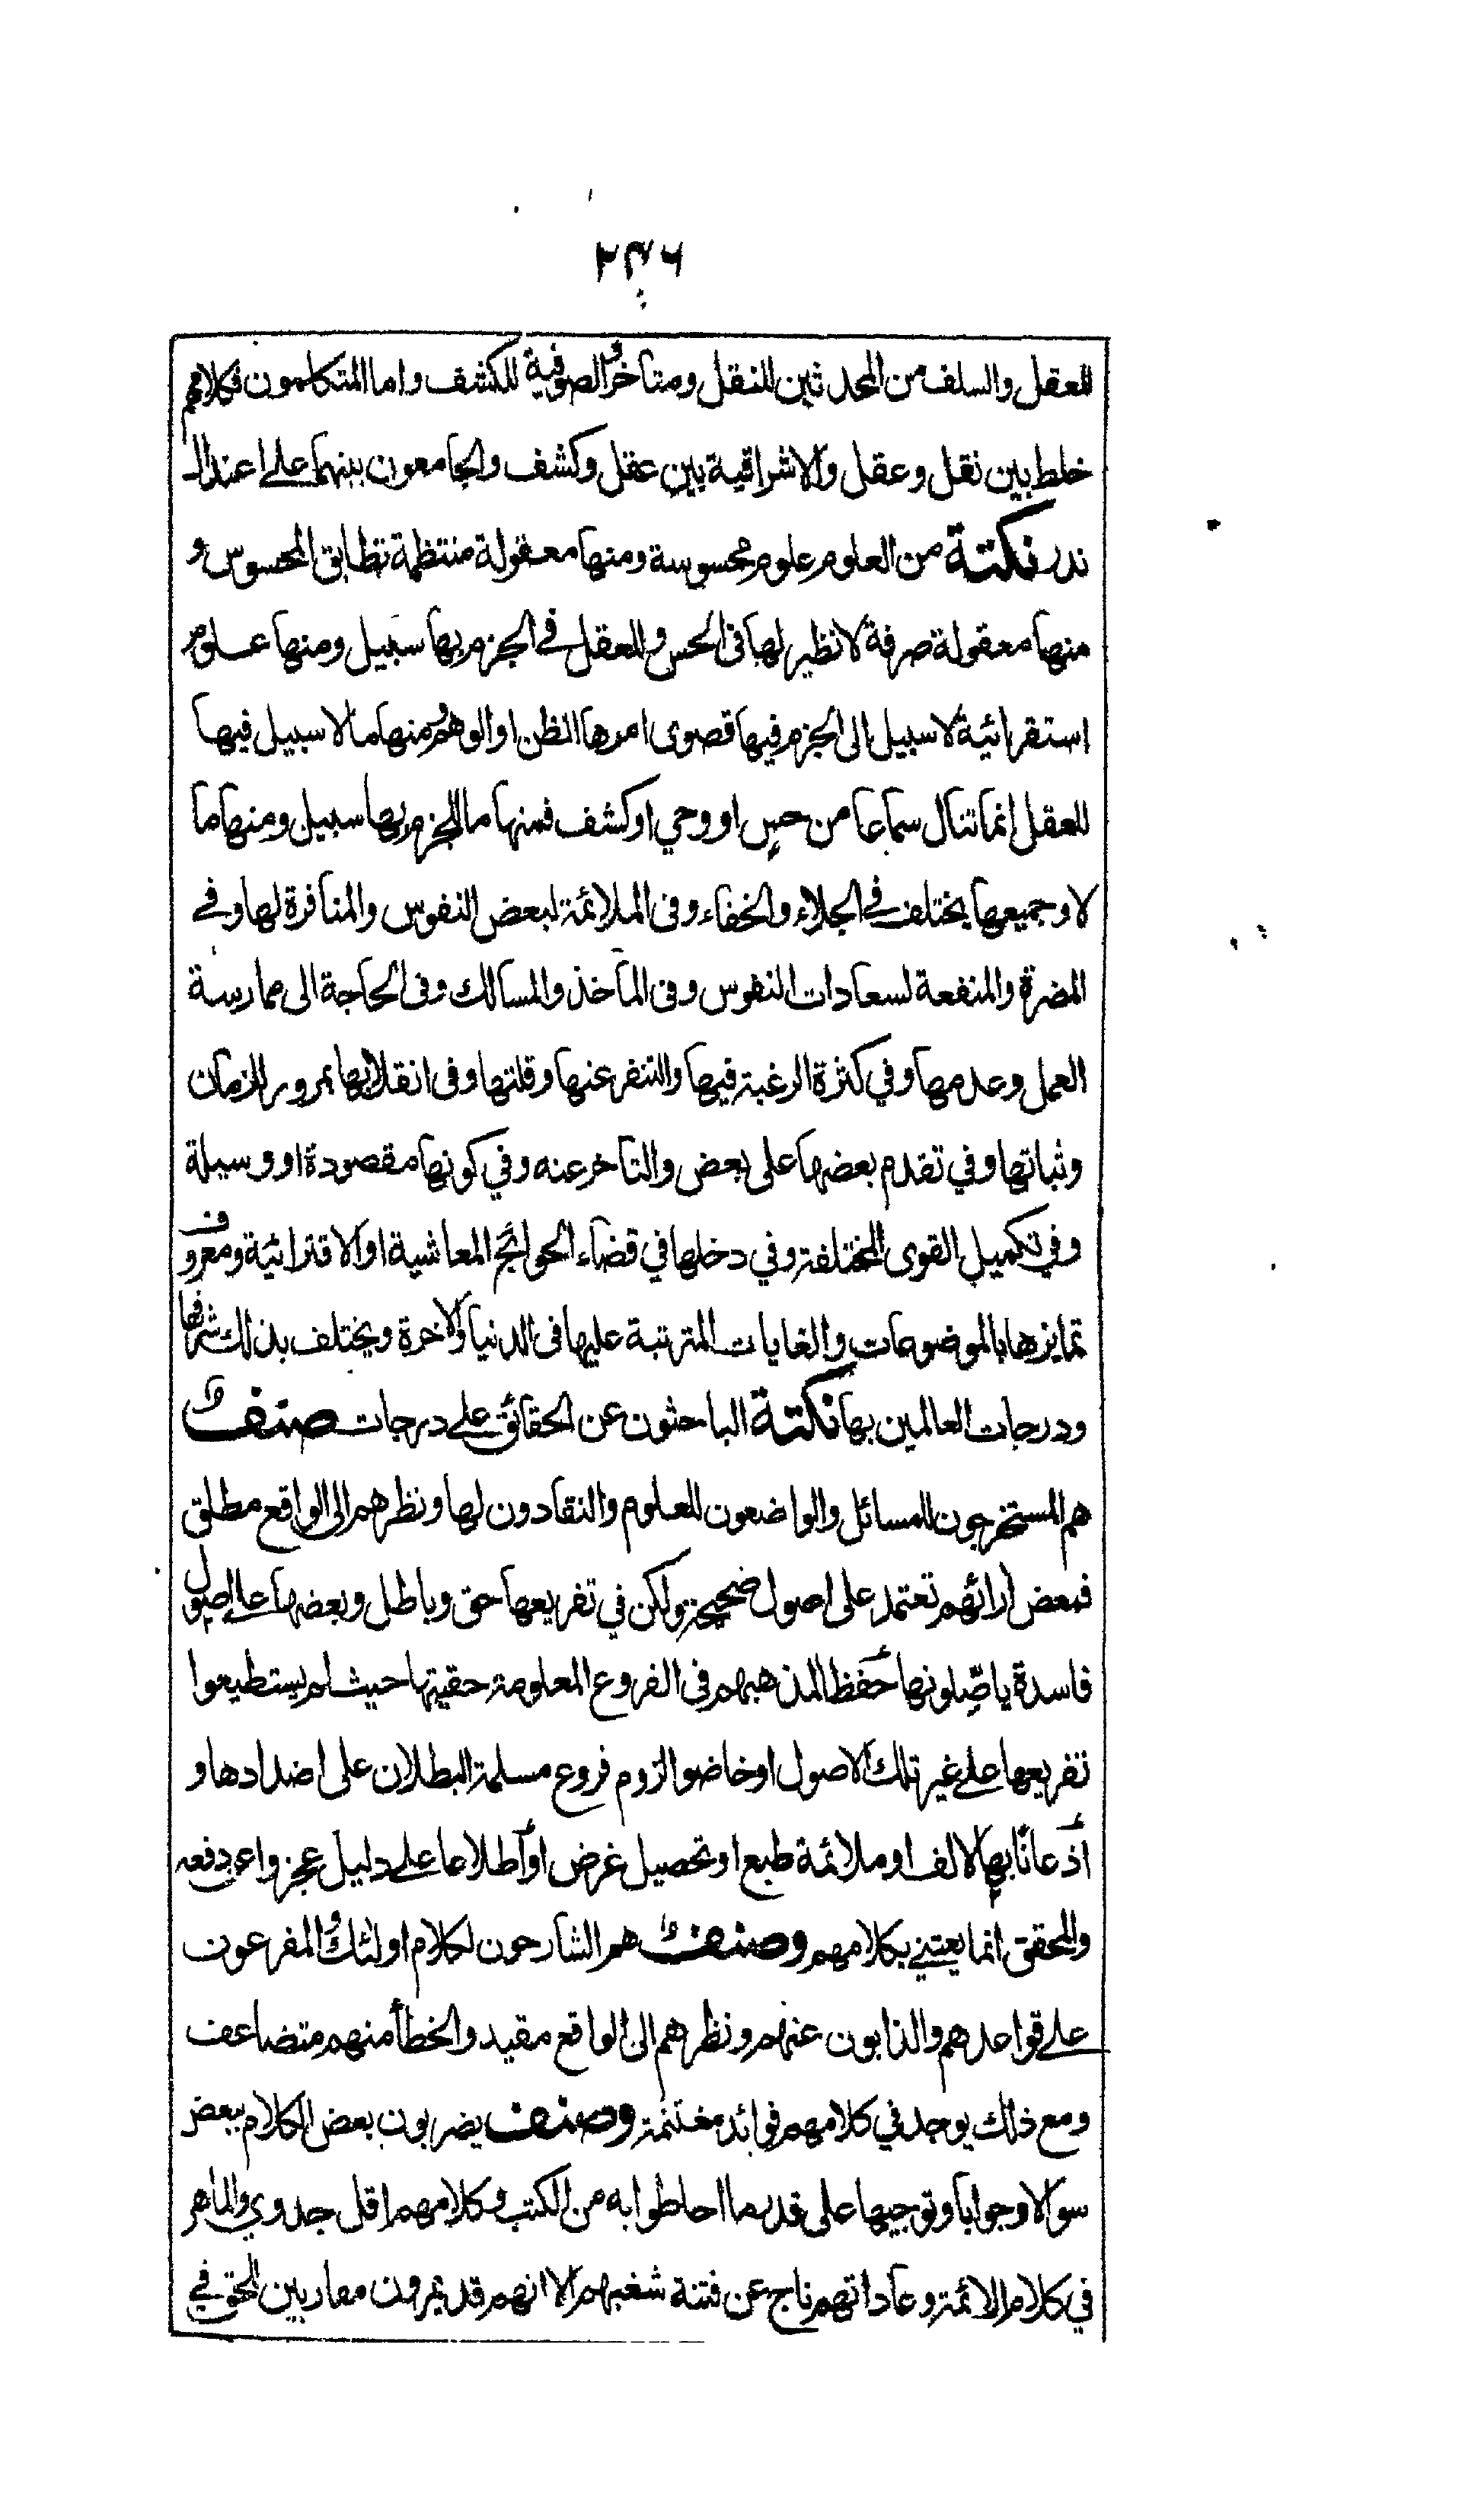 ٢٣٦
للعقل والسلف من المحدثين للنقل ومتأخرو الصوفية للكشف واما المتكلمون فكلامهم
خلط بين نقل وعقل والاشراقية بين عقل وكشف والجامعون بينهما على اعتدال
ندر نكتة من العلوم علوم محسوسة ومنها معقولة منتظمة تطابق المحسوس و
منها معقولة صرفة لا نظير لها في الحس وللعقل في الجزم بها سبيل ومنها علوم
استقرائية لا سبيل الى الجزم فيها قصوى امرها الظن او الوهم ومنها ما لا سبيل فيها
للعقل انما تنال سماعا من حس او وحي او كشف فمنها ما للجزم بها سبيل ومنها ما
لا وجميعها يختلف في الجلاء والخفاء وفي الملائمة لبعض النفوس والمنافرة لها وفي
المضرة والمنفعة لسعادات النفوس وفي المآخذ والمسالك وفي الحاجة الى ممارسة
العمل وعدمها وفي كثرة الرغبة فيها والتنفر عنها وقلتها وفي انقلابها بمرور الزمان
وثباتها وفي تقدم بعضها على بعض والتاخر عنه وفي كونها مقصودة او وسيلة
وفي تكميل القوى المختلفة وفي دخلها في قضاء الحوائج المعاشية او الاقترابية ومعروف
تمايزها بالموضوعات والغايات المترتبة عليها في الدنيا والاخرة ويختلف بذلك شرفها
ودرجات العالمين بها نكتة الباحثون عن الحقائق على درجات صنف
هم المستخرجون للمسائل والواضعون للعلوم والنقادون لها ونظرهم الى الواقع مطلق
فبعض ارائهم تعتمد على اصول صحيحة ولكن في تفريعها حق وباطل وبعضها على اصول
فاسدة ياصّلونها حفظا لمذهبهم في الفروع المعلومة حقيتها حيث لم يستطيعوا
تفريعها على غير تلك الاصول او خاضوا لزوم فروع مسلمة البطلان على اضدادها و
اذعانا بها لالف او ملائمة طبع او تحصيل غرض او اطلاعا على دليل عجزوا عن دفعه
والمحقق انما يعتني بكلامهم وصنف هم الشارحون لكلام اولئك والمفرعون
على قواعدهم والذابون عنهم ونظرهم الى الواقع مقيد والخطأ منهم متضاعف
ومع ذلك يوجد في كلامهم فوائد مغتنمة وصنف يضربون بعض الكلام ببعض
سوالا وجوابا وتوجيها على قدر ما احاطوا به من الكتب وكلامهم اقل جدوى والماهر
في كلام الائمة وعاداتهم ناج عن فتنة شغبهم الا انهم قد يمرون مماريين الحق في